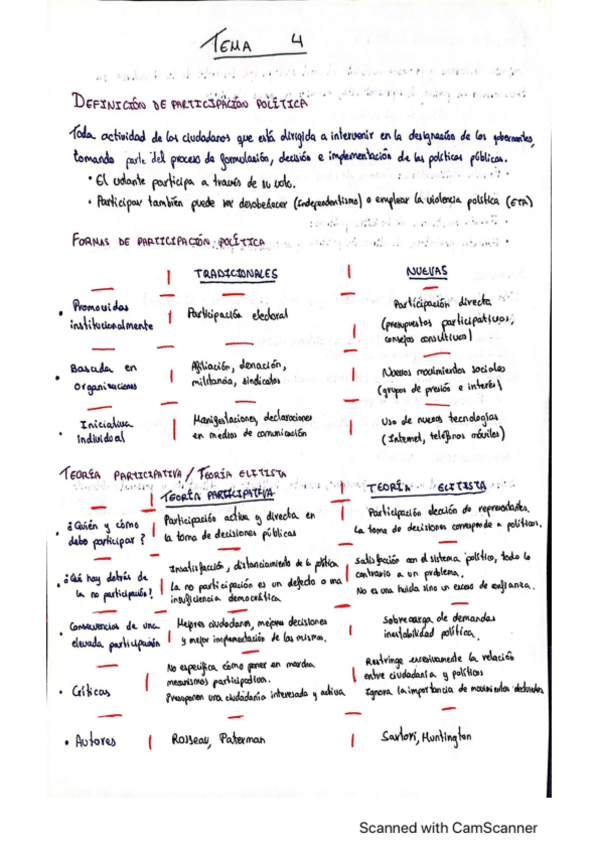 TEMA 4
DEFINICIÓN DE PARTICIPACIÓN POLÍTICA
Toda actividad de los ciudadanos que está dirigida a intervenir en la designación de los gobernantes,
tomando parte del proceso de formulación, decisión e implementación de las políticas públicas.
• El votante participa a través de su voto.
• Participar también puede ser desobedecer (Independentismo) o emplear la violencia política (ETA)
FORMAS DE PARTICIPACIÓN POLÍTICA
TRADICIONALES
NUEVAS
• Promovidas
institucionalmente
Participación electoral
Participación directa
(presupuestos participativos,
consejos consultivos)
• Basada en
organizaciones
Afiliación, donación,
militancia, sindicatos
Nuevos movimientos sociales
(grupos de presión e interés)
• Iniciativa
individual
Manifestaciones, declaraciones
en medios de comunicación
Uso de nuevas tecnologías
(Internet, teléfonos móviles)
TEORÍA PARTICIPATIVA / TEORÍA ELITISTA
TEORÍA PARTICIPATIVA
TEORÍA ELITISTA
• ¿Quién y cómo
debe participar?
Participación activa y directa en
la toma de decisiones públicas
Participación elección de representantes.
La toma de decisiones corresponde a políticos.
• ¿Qué hay detrás de
la no participación?
Insatisfacción, distanciamiento de la política
La no participación es un defecto o una
insuficiencia democrática.
Satisfacción con el sistema político, todo lo
contrario a un problema.
No es una huida sino un exceso de confianza.
• Consecuencias de una
elevada participación
Mejores ciudadanos, mejores decisiones
y mejor implementación de las mismas.
Sobrecarga de demandas
inestabilidad política.
• Críticas
No especifica cómo poner en marcha
mecanismos participativos.
Presuponen una ciudadanía interesada y activa
Restringe excesivamente la relación
entre ciudadanía y políticos
Ignora la importancia de movimientos
• Autores
Rosseau, Paterman
Sartori, Huntington
Scanned with CamScanner